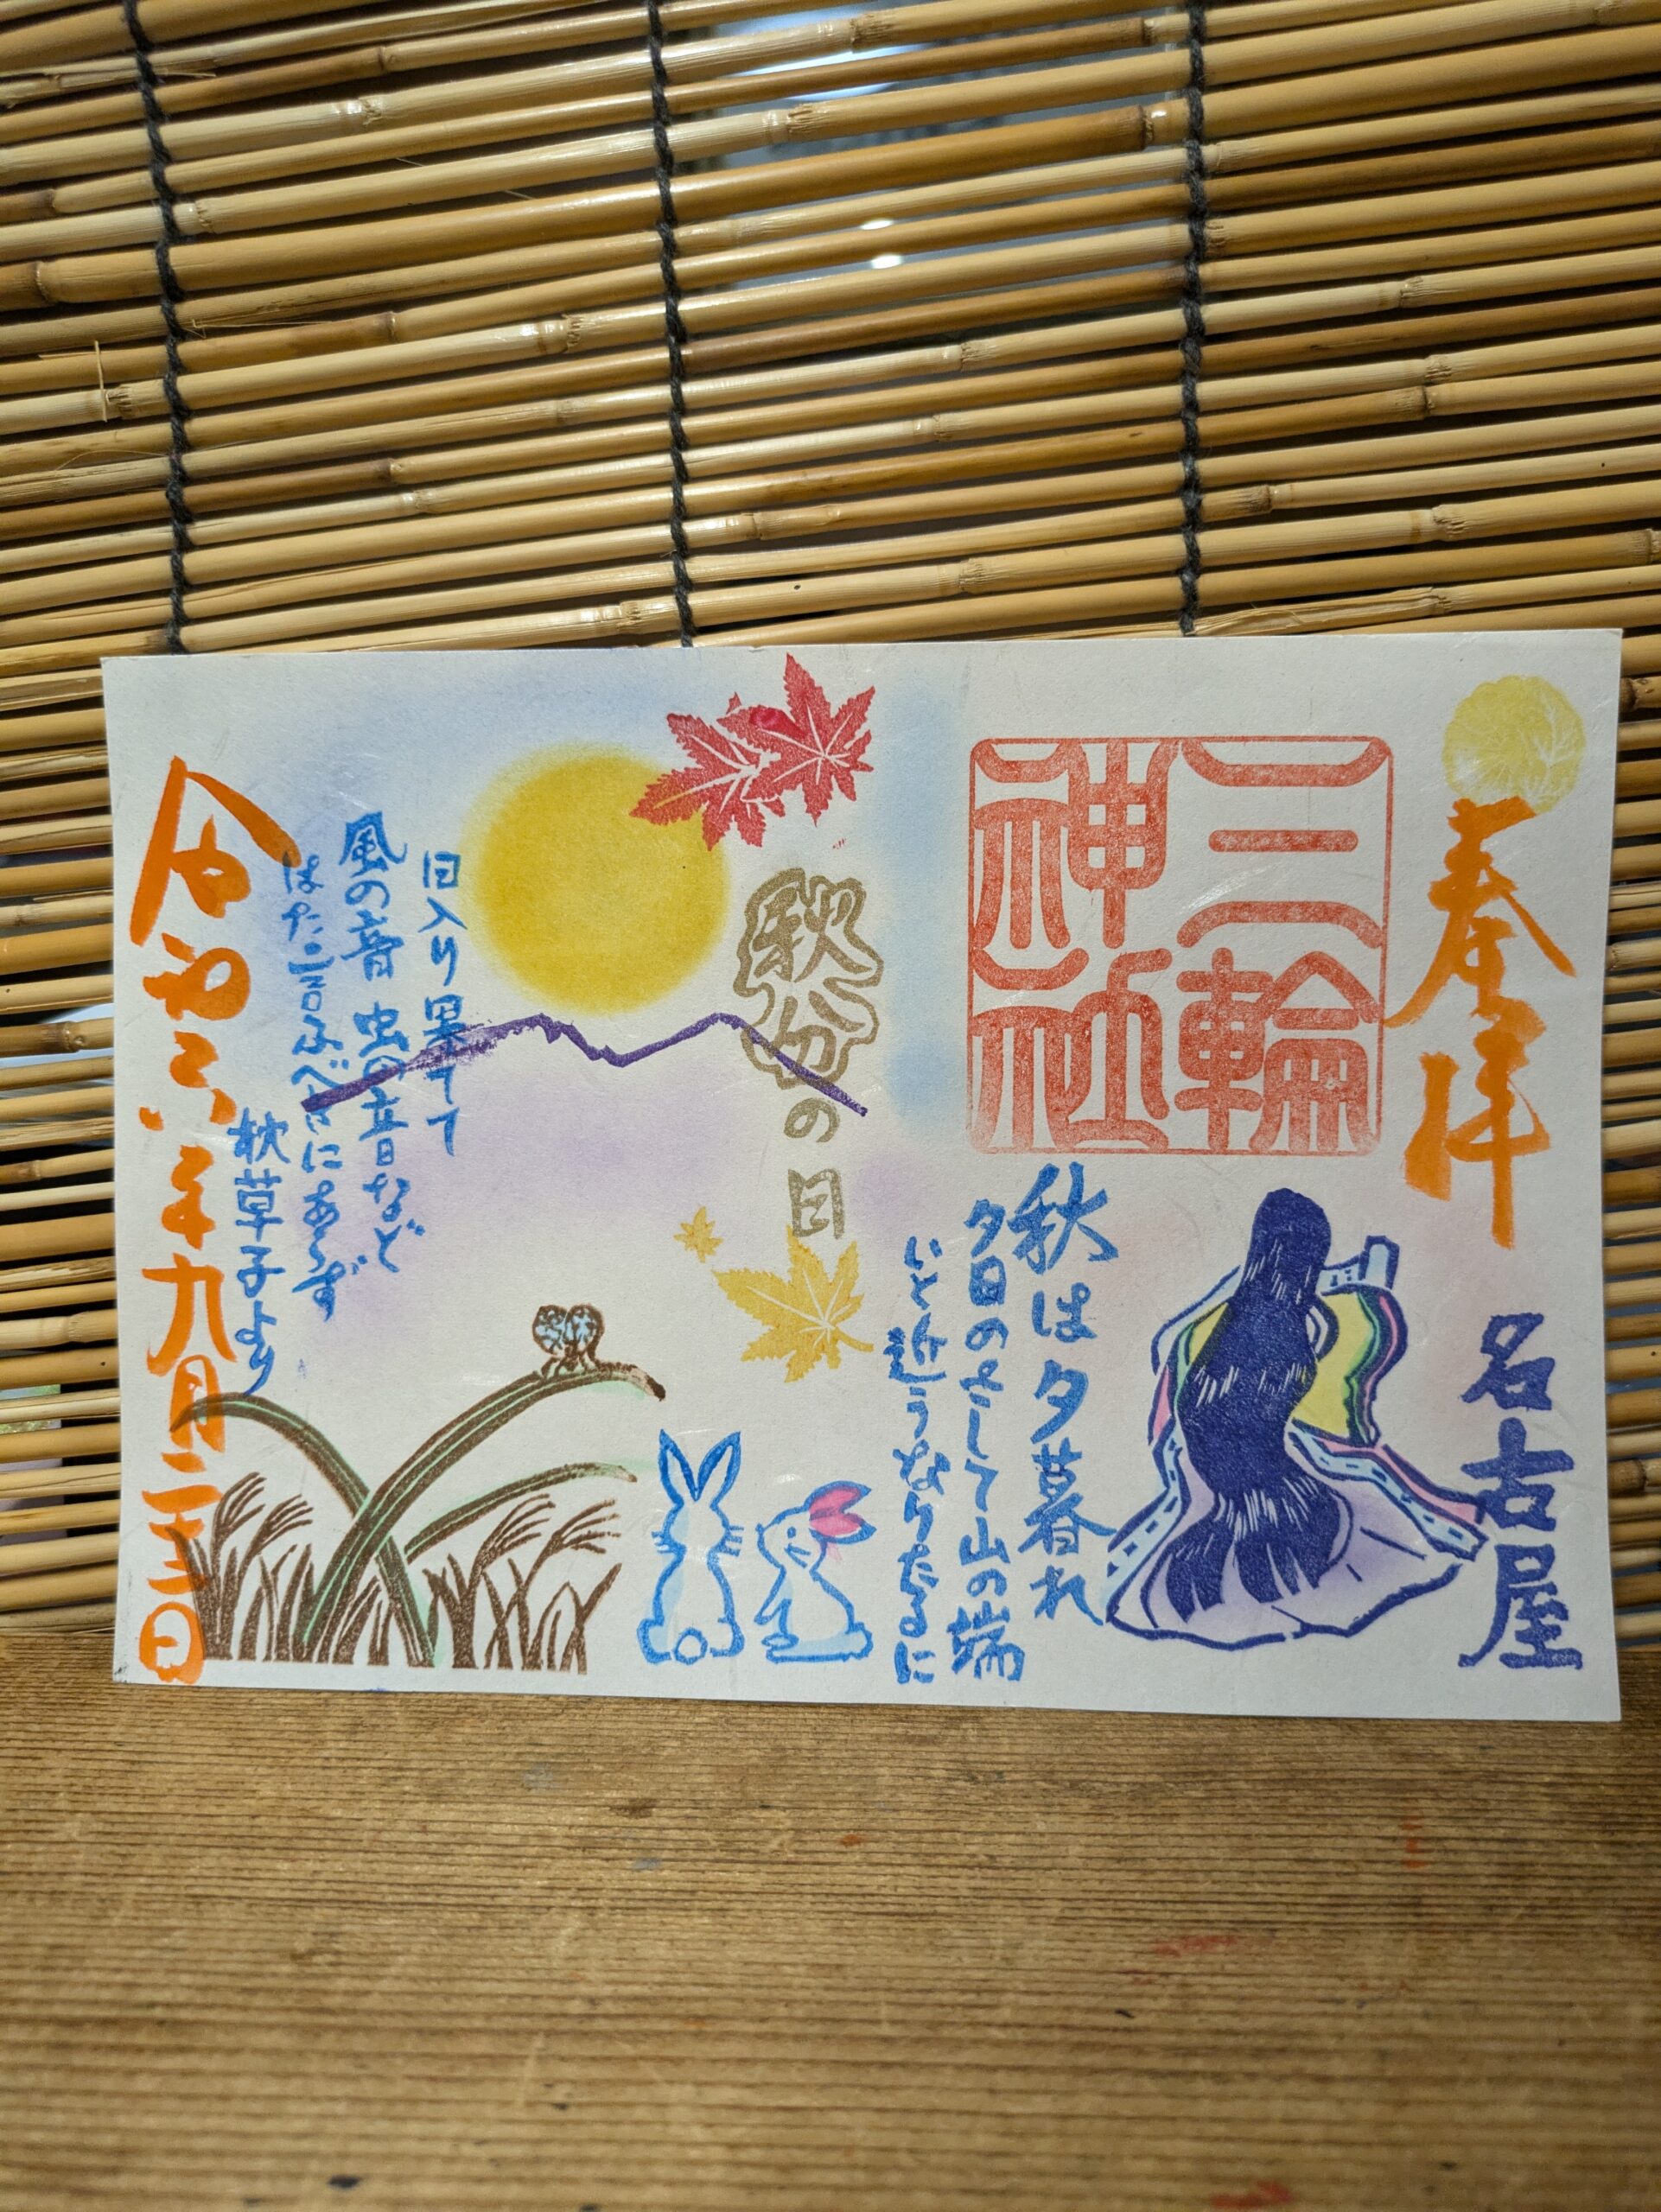 奉拝
名古屋
三輪
神社
秋は夕暮れ
夕日のさして山の端
いと近うなりたるに
秋分の日
日入り果てて
風の音 虫の音など
はた言ふべきにあらず
枕草子より
令和六年九月二十三日